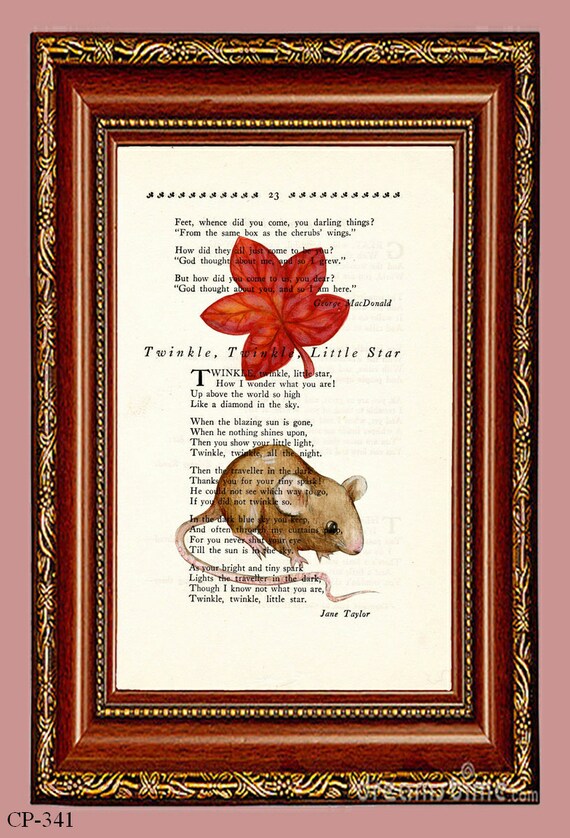 23
Feet, whence did you come, you darling things?
"From the same box as the cherubs' wings."
How did they all just come to be you?
"God thought about me, and so I grew."
But how did you come to us, you dear?
"God thought about you, and so I am here."
George MacDonald
Twinkle, Twinkle, Little Star
TWINKLE, twinkle, little star,
How I wonder what you are!
Up above the world so high
Like a diamond in the sky.
When the blazing sun is gone,
When he nothing shines upon,
Then you show your little light,
Twinkle, twinkle all the night.
Then the traveller in the dark
Thanks you for your tiny spark!
He could not see which way to go,
If you did not twinkle so.
In the dark blue sky you keep,
And often through my curtains peep,
For you never shut your eye
Till the sun is in the sky.
As your bright and tiny spark
Lights the traveller in the dark,
Though I know not what you are,
Twinkle, twinkle, little star.
Jane Taylor
dreamstime.com
CP-341